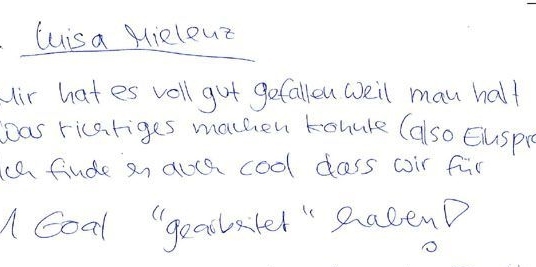 Luisa Mielenz
Mir hat es voll gut gefallen weil man halt
was richtiges machen konnte (also Einspre
Ich finde es auch cool dass wir für
1 Goal "gearbeitet" haben!